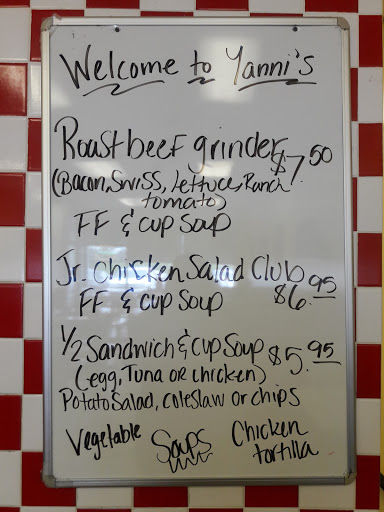 Welcome to Yanni's
Roast beef grinder $7.50
(Bacon, Swiss, Lettuce, Ranch
tomato)
FF & cup soup
Jr. Chicken Salad Club
FF & cup soup $6.95
1/2 Sandwich & cup soup $5.95
(egg, Tuna or chicken)
Potato Salad, coleslaw or chips
Vegetable Soups Chicken
tortilla